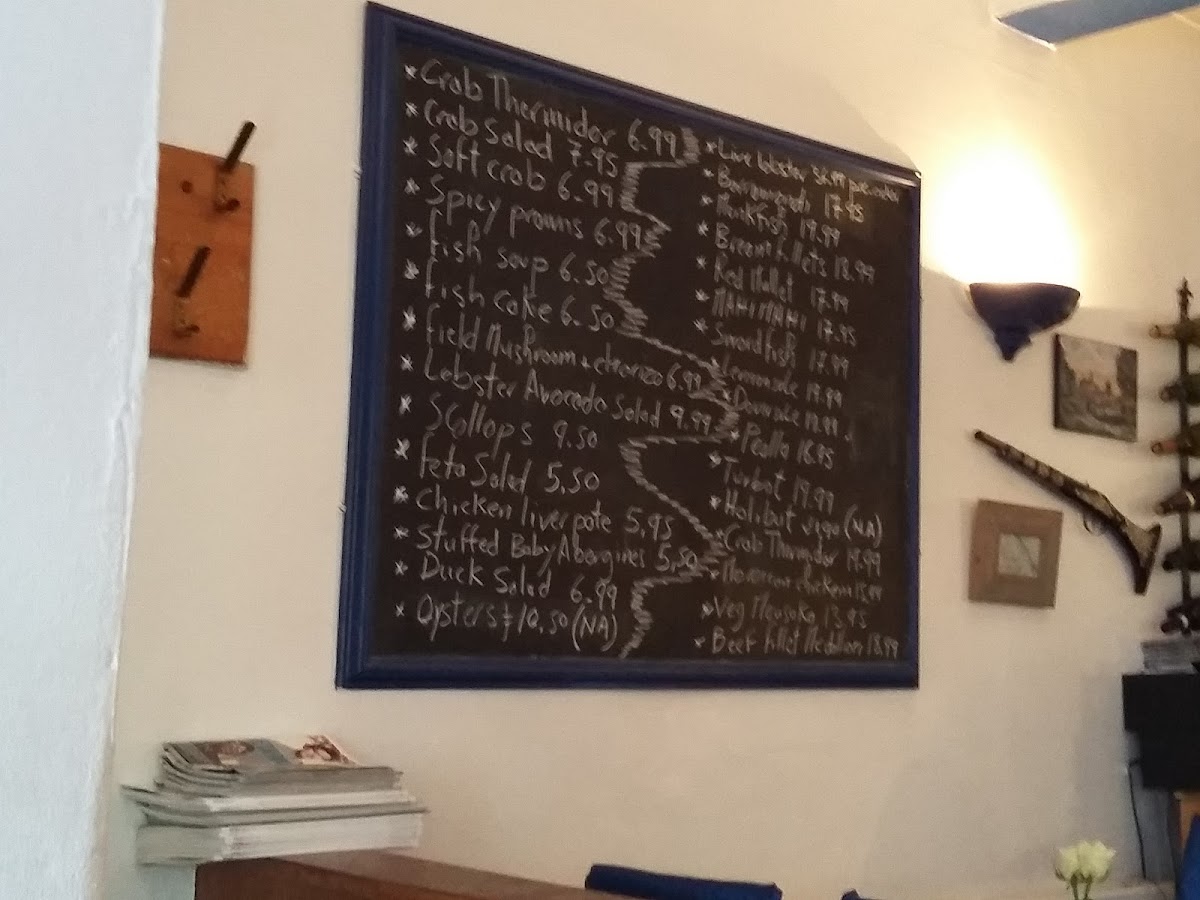 * Crab Thermidor 6.99
* Crab Salad 7.95
* Soft crab 6.99
* Spicy prawns 6.99
* fish soup 6.50
* fish cake 6.50
* field Mushroom + chorizo 6.99
* Lobster Avocado Salad 9.99
* SCallops 9.50
* feta Salad 5,50
* Chicken liver pate 5,95
* Stuffed Baby Abergines 5,50
* Duck Salad 6.99
* Oysters 10,50 (NA)
* Live lobster
* 17.95
* Monkfish 19.99
* Bream fillets 18.99
* Red Mullet 17.99
* MAHI MAHI 17.95
* Swordfish 17.99
* Lemon sole
* Dover sole
* Paella 16.95
* Turbot 19.99
* Halibut (NA)
* Crab Thermidor 19.99
* Moroccan chicken
* Veg Mousaka 13,95
* Beef fillet Medallion 18,99